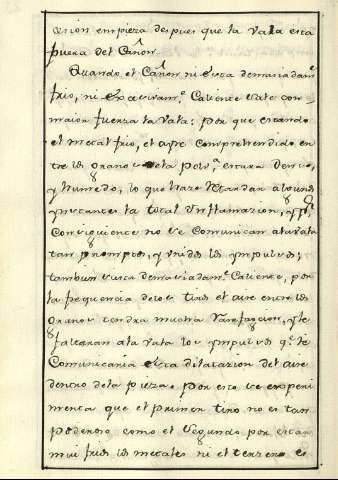 cesion empieza despues que la vala está
fuera del Cañon.
Quando el Cañon ni está demasiadam.te
frio, ni Excesivam.te Caliente sale con
maior fuerza la vala: por que estando
el metal frio, el ayre Comprehendido en
tre los granos de la polv.a estará denso,
y humedo, lo que hace retardar algunos
ynstantes la total Ynflamazion, y p.r
Consiguiente no se Comunican a la vala
tan promptos, y unidos los ympulsos;
tambien si está demasiadam.te Caliente, por
la frequencia de los tiros el aire entre los
granos tendra mucha rarefaccion, y le
faltaran a la vala los ympulsos q.e le
Comunicaria esta dilatacion del aire
dentro de la pieza: por eso se experi
menta que el primer tiro no es tan
poderoso como el segundo por estar
mui frios los metales ni el terreno es